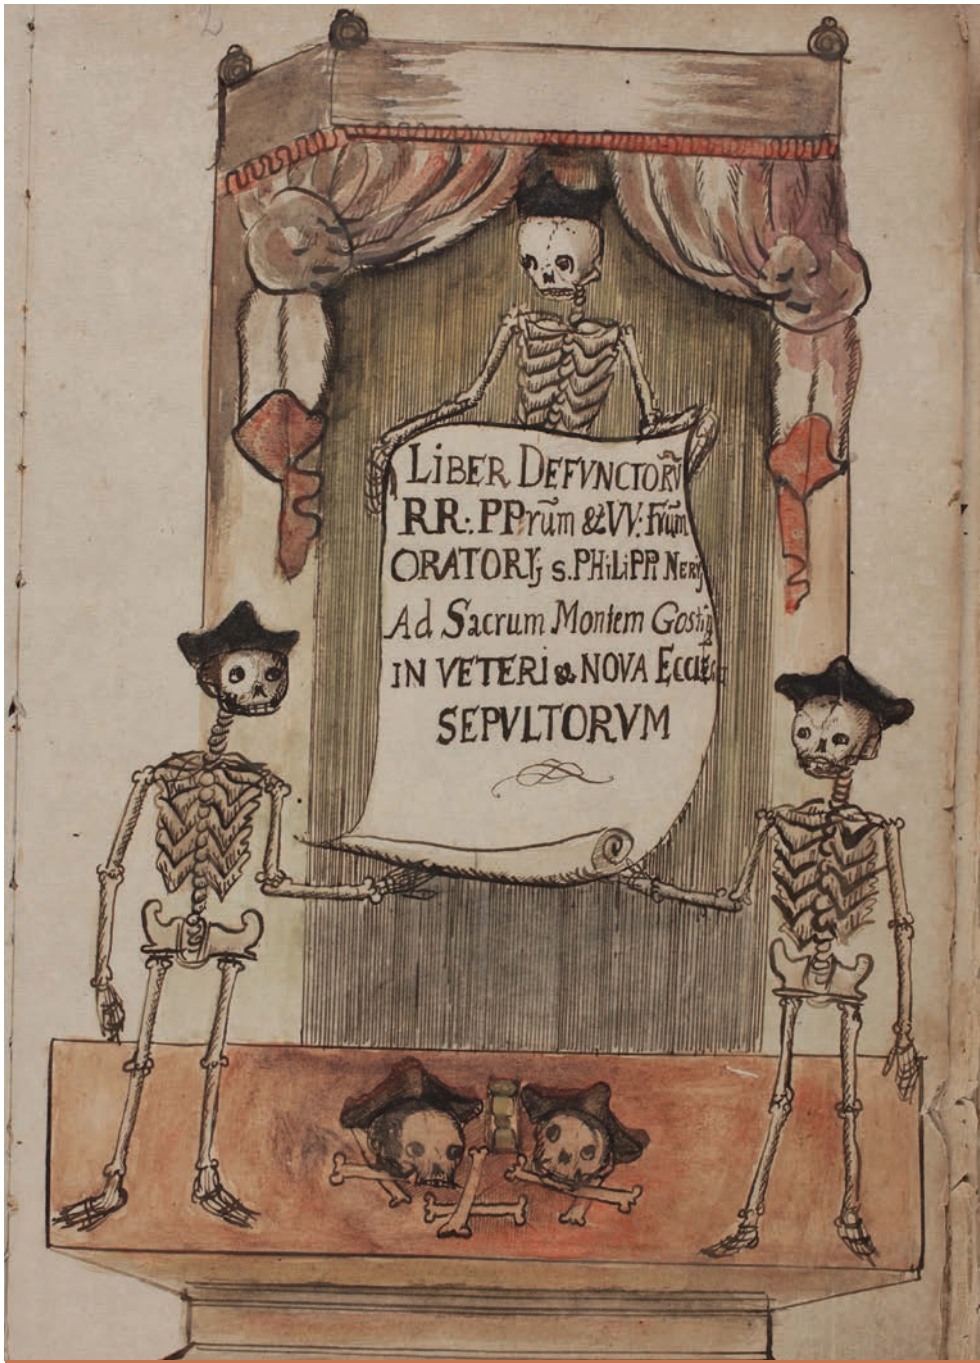 2
LiBER DEFVNCTORŨ
RR: PPrũm & VV: Frũm
ORATORIJ S. PHiLiPPI NERIJ
Ad Sacrum Montem Gostip
IN VETERi & NOVA ECCLESIA
SEPVLTORVM